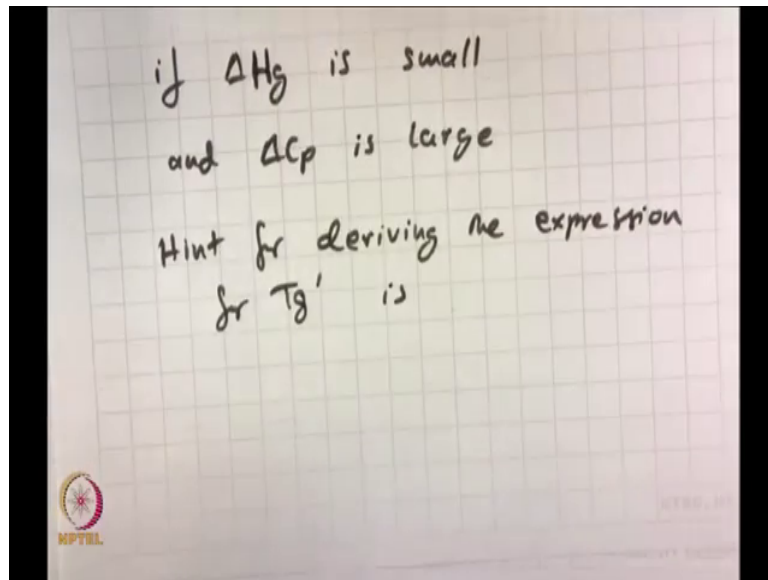 if ΔHg is small
and ΔCp is large
Hint for deriving the expression
for Tg' is
NPTEL